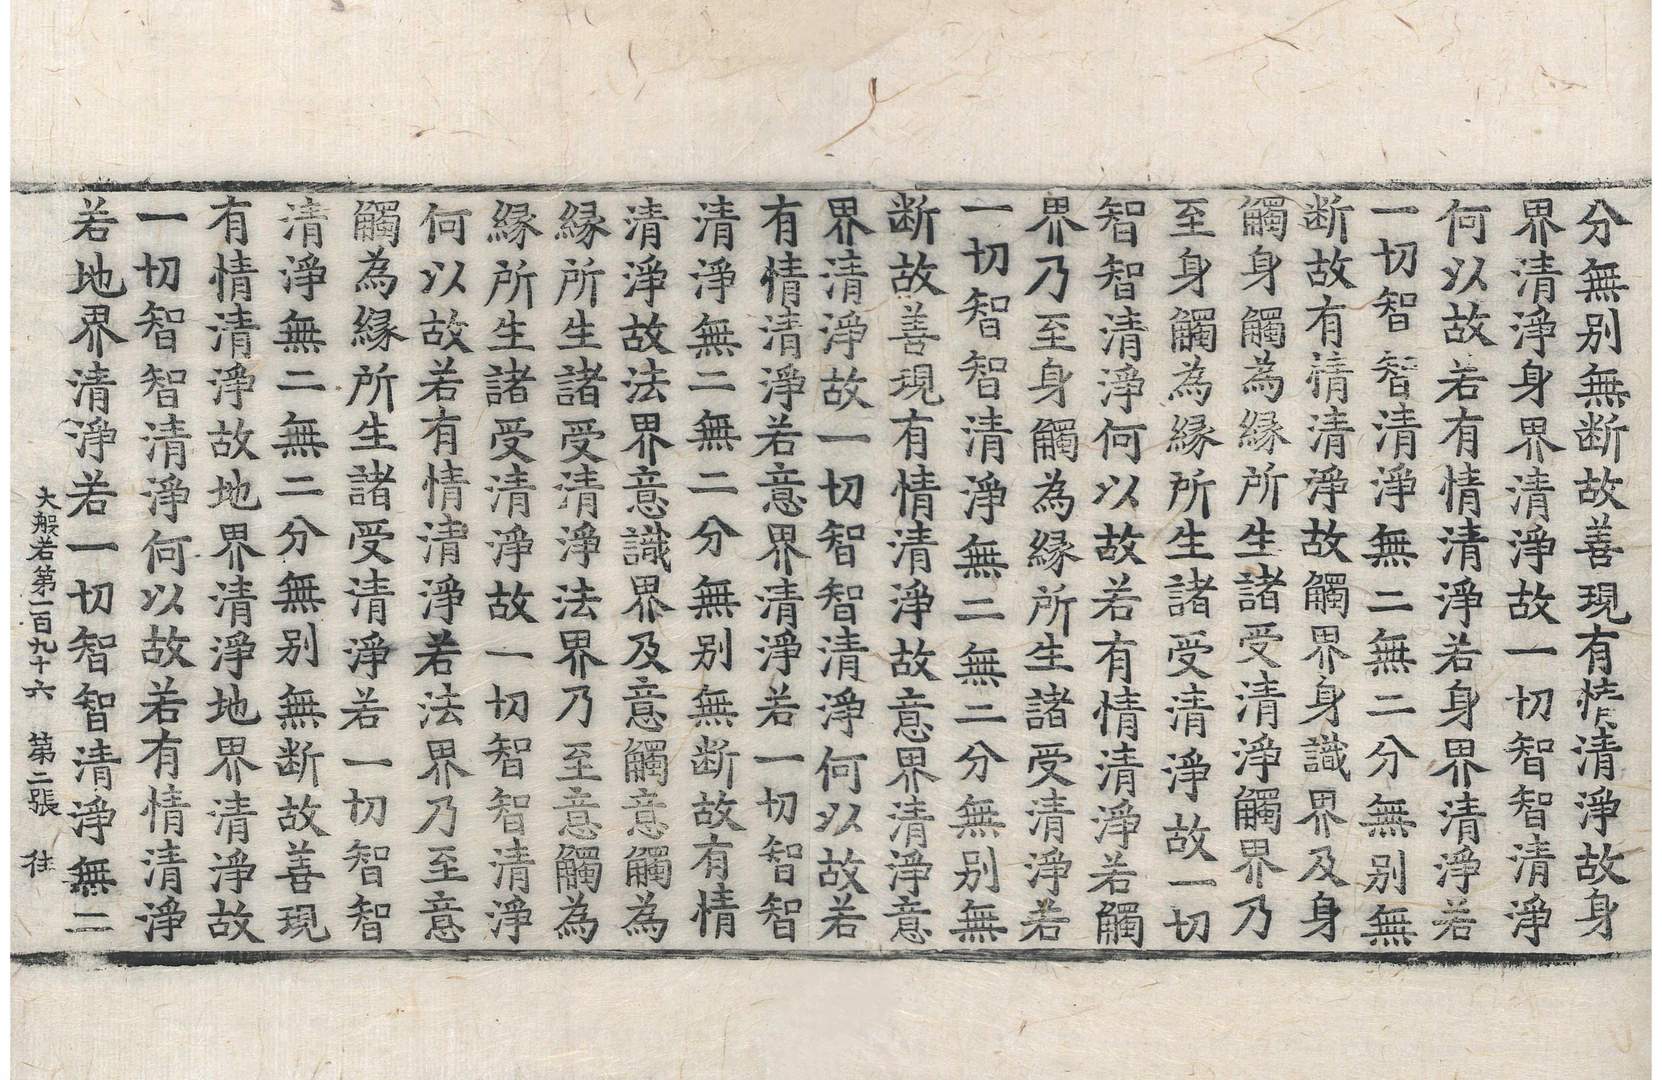 分無別無断故善現有情清淨故身
界清淨身界清淨故一切智智清淨
何以故若有情清淨若身界清淨若
一切智智清淨無二無二分無別無
断故有情清淨故觸界身識界及身
觸身觸為緣所生諸受清淨觸界乃
至身觸為緣所生諸受清淨故一切
智智清淨何以故若有情清淨若觸
界乃至身觸為緣所生諸受清淨若
一切智智清淨無二無二分無別無
断故善現有情清淨故意界清淨意
界清淨故一切智智清淨何以故若
有情清淨若意界清淨若一切智智
清淨無二無二分無別無断故有情
清淨故法界意識界及意觸意觸為
緣所生諸受清淨法界乃至意觸為
緣所生諸受清淨故一切智智清淨
何以故若有情清淨若法界乃至意
觸為緣所生諸受清淨若一切智智
清淨無二無二分無別無断故善現
有情清淨故地界清淨地界清淨故
一切智智清淨何以故若有情清淨
若地界清淨若一切智智清淨無二
大般若第一百九十六 第二張 往